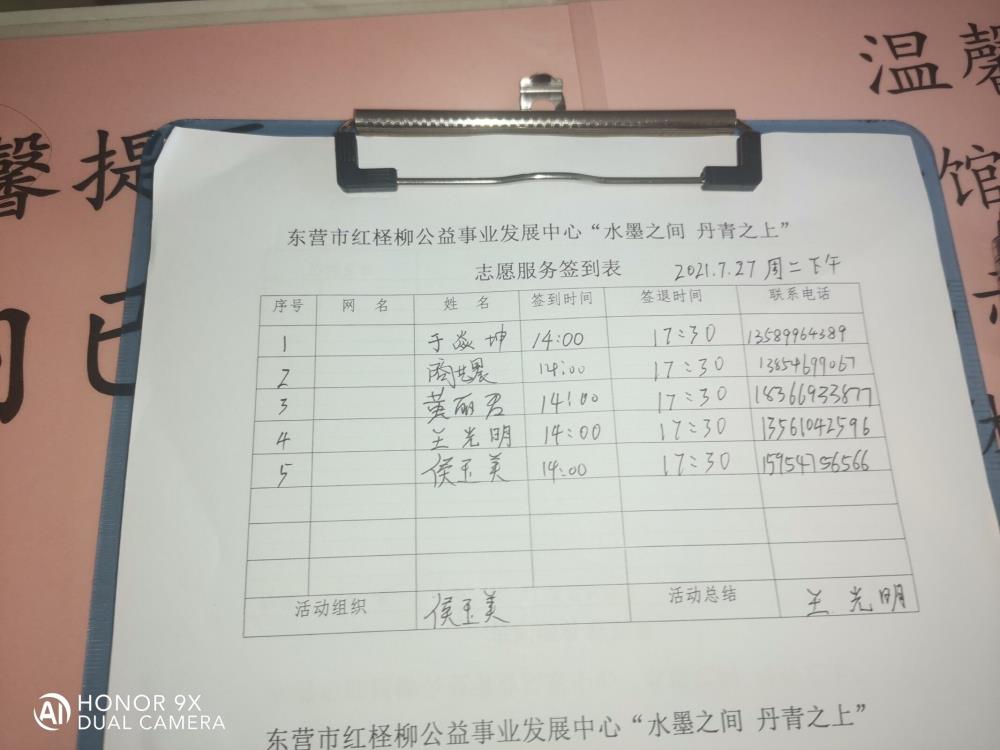 温馨
馨提示
馆
东营市红柽柳公益事业发展中心“水墨之间 丹青之上”
志愿服务签到表 2021.7.27 周二下午
序号 网 名 姓 名 签到时间 签退时间 联系电话
1 于焱坤 14:00 17:30 13589964389
2 14:00 17:30 13854699067
3 黄丽君 14:00 17:30 18366933877
4 王光明 14:00 17:30 13561042596
5 侯玉美 14:00 17:30 15954756566
活动组织 侯玉美 活动总结 王光明
东营市红柽柳公益事业发展中心“水墨之间 丹青之上”
HONOR 9X
DUAL CAMERA